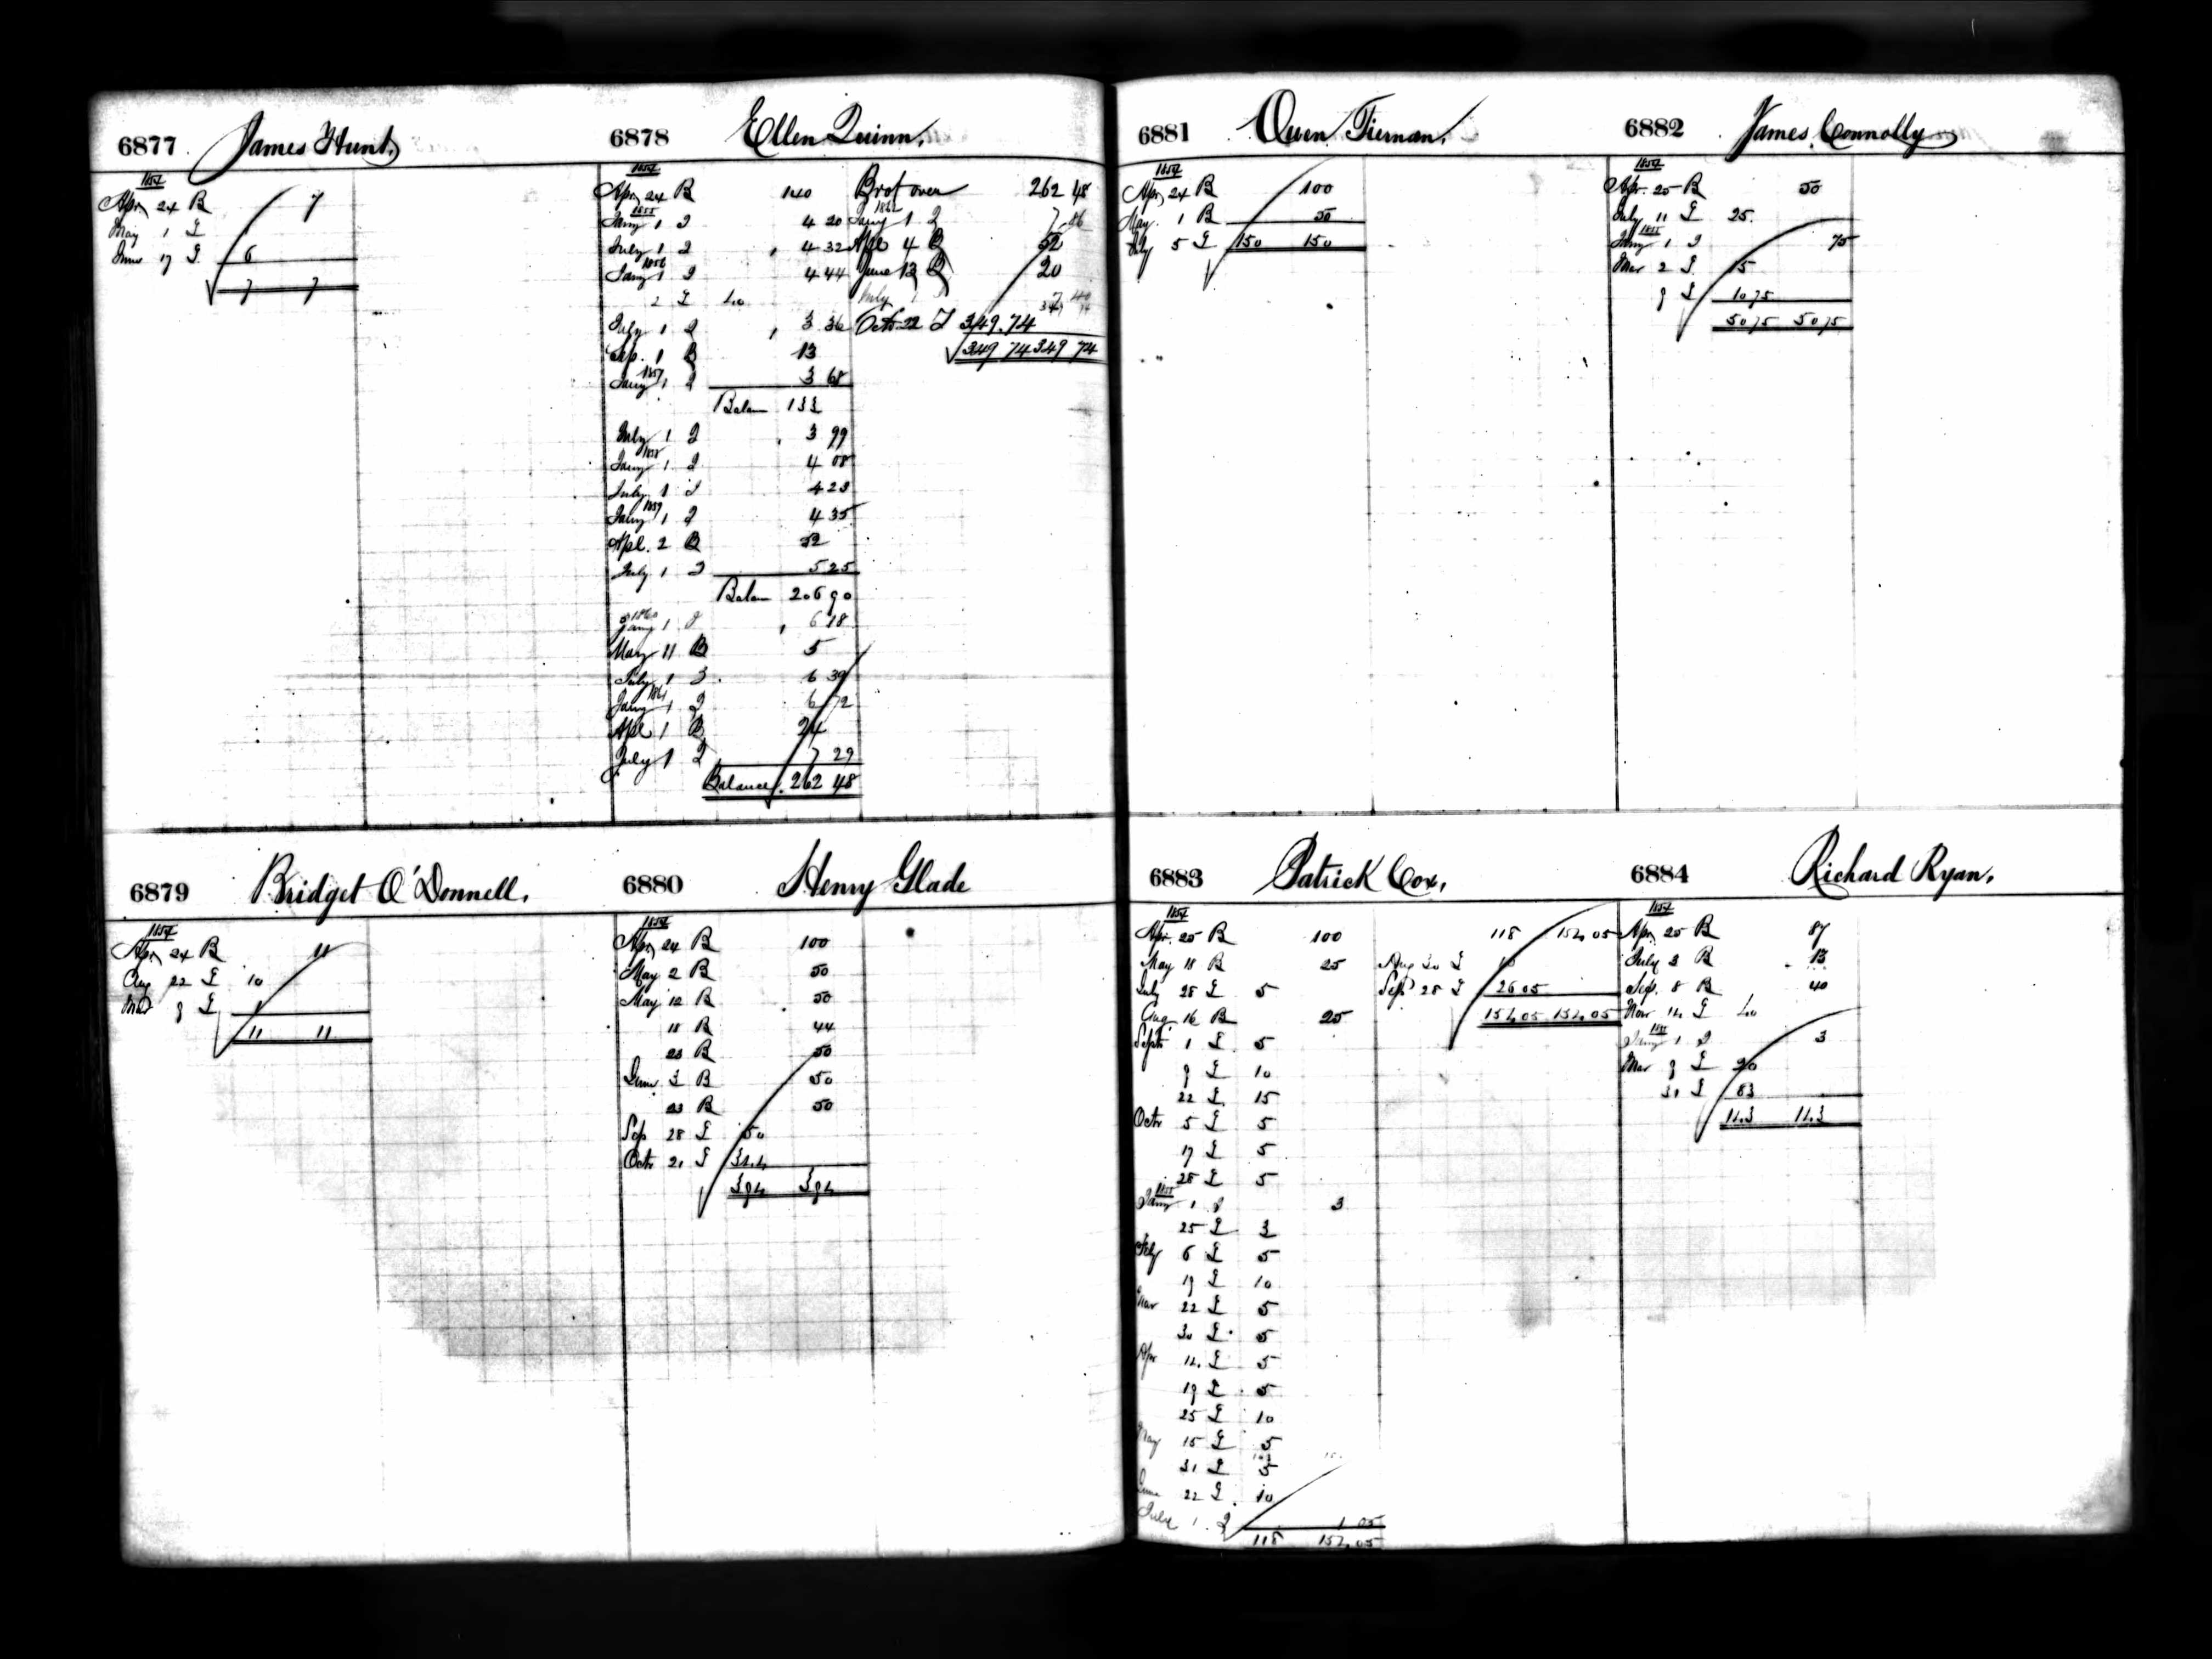 6877 James Hunt.
1854
Apr, 24 B 7
May 1 £ 1
June 17 £ 6
7 7
6878 Ellen Quinn.
1854
Apr, 24 B 140
1855
Jany 1 2 4 20
July 1 2 4 32
1856
Jany 1 2 4 44
2 £ 40
July 1 2 3 36
Sep. 1 B 13
1857
Jany 1 2 3 68
Balan 133
July 1 2 3 99
1858
Jany 1 2 4 08
July 1 2 4 23
1859
Jany 1 2 4 35
Apl. 2 B 52
July 1 2 5 25
Balan 206 90
1860
Jany 1 2 6 18
May 11 B 5
July 1 2 6 39
1861
Jany 1 2 6 72
Apl 1 B 24
July 1 2 7 29
Balance. 262 48
Brot over 262 48
1862
Jany 1 2 7 86
Apl 4 B 52
June 13 B 20
July 7 40
349 74
Octr 22 £ 349.74
349 74 349 74
6879 Bridget O'Donnell.
1854
Apr, 24 B 11
Aug 22 £ 10
Mar 9 £ 1
11 11
6880 Henry Glade
1854
Apr, 24 B 100
May 2 B 50
May 12 B 50
18 B 44
23 B 50
June 3 B 50
23 B 50
Sep 28 £ 50
Octr 21 £ 344
394 394
6881 Owen Tiernan.
1854
Apr, 24 B 100
May. 1 B 50
July 5 £ 150 150
6882 James Connolly
1854
Apr. 25 B 50
July 11 £ 25.
1855
Jany 1 2 75
Mar 2 £ 15
9 £ 10 75
50 75 50 75
6883 Patrick Cox.
1854
Apr. 25 B 100
May 18 B 25
July 28 £ 5
Aug 16 B 25
Septr 1 £ 5
9 £ 10
22 £ 15
Octr 5 £ 5
17 £ 5
28 £ 5
1855
Jany 1 2 3
25 £ 3
Feby 6 £ 5
19 £ 10
Mar 22 £ 5
30 £ 5
Apr 14 £ 5
19 £ 5
25 £ 10
May 15 £ 5
31 £ 5
June 22 £ 10
July 1 2 1 05
118 154 05
118 154 05
Aug 20 £ 10
Sep 28 £ 26 05
154 05 154 05
6884 Richard Ryan.
1854
Apr, 25 B 87
July 3 B 13
Sep. 8 B 40
Nov 14 £ 40
1855
Jany 1 2 3
Mar 9 £ 20
31 £ 83
143 143